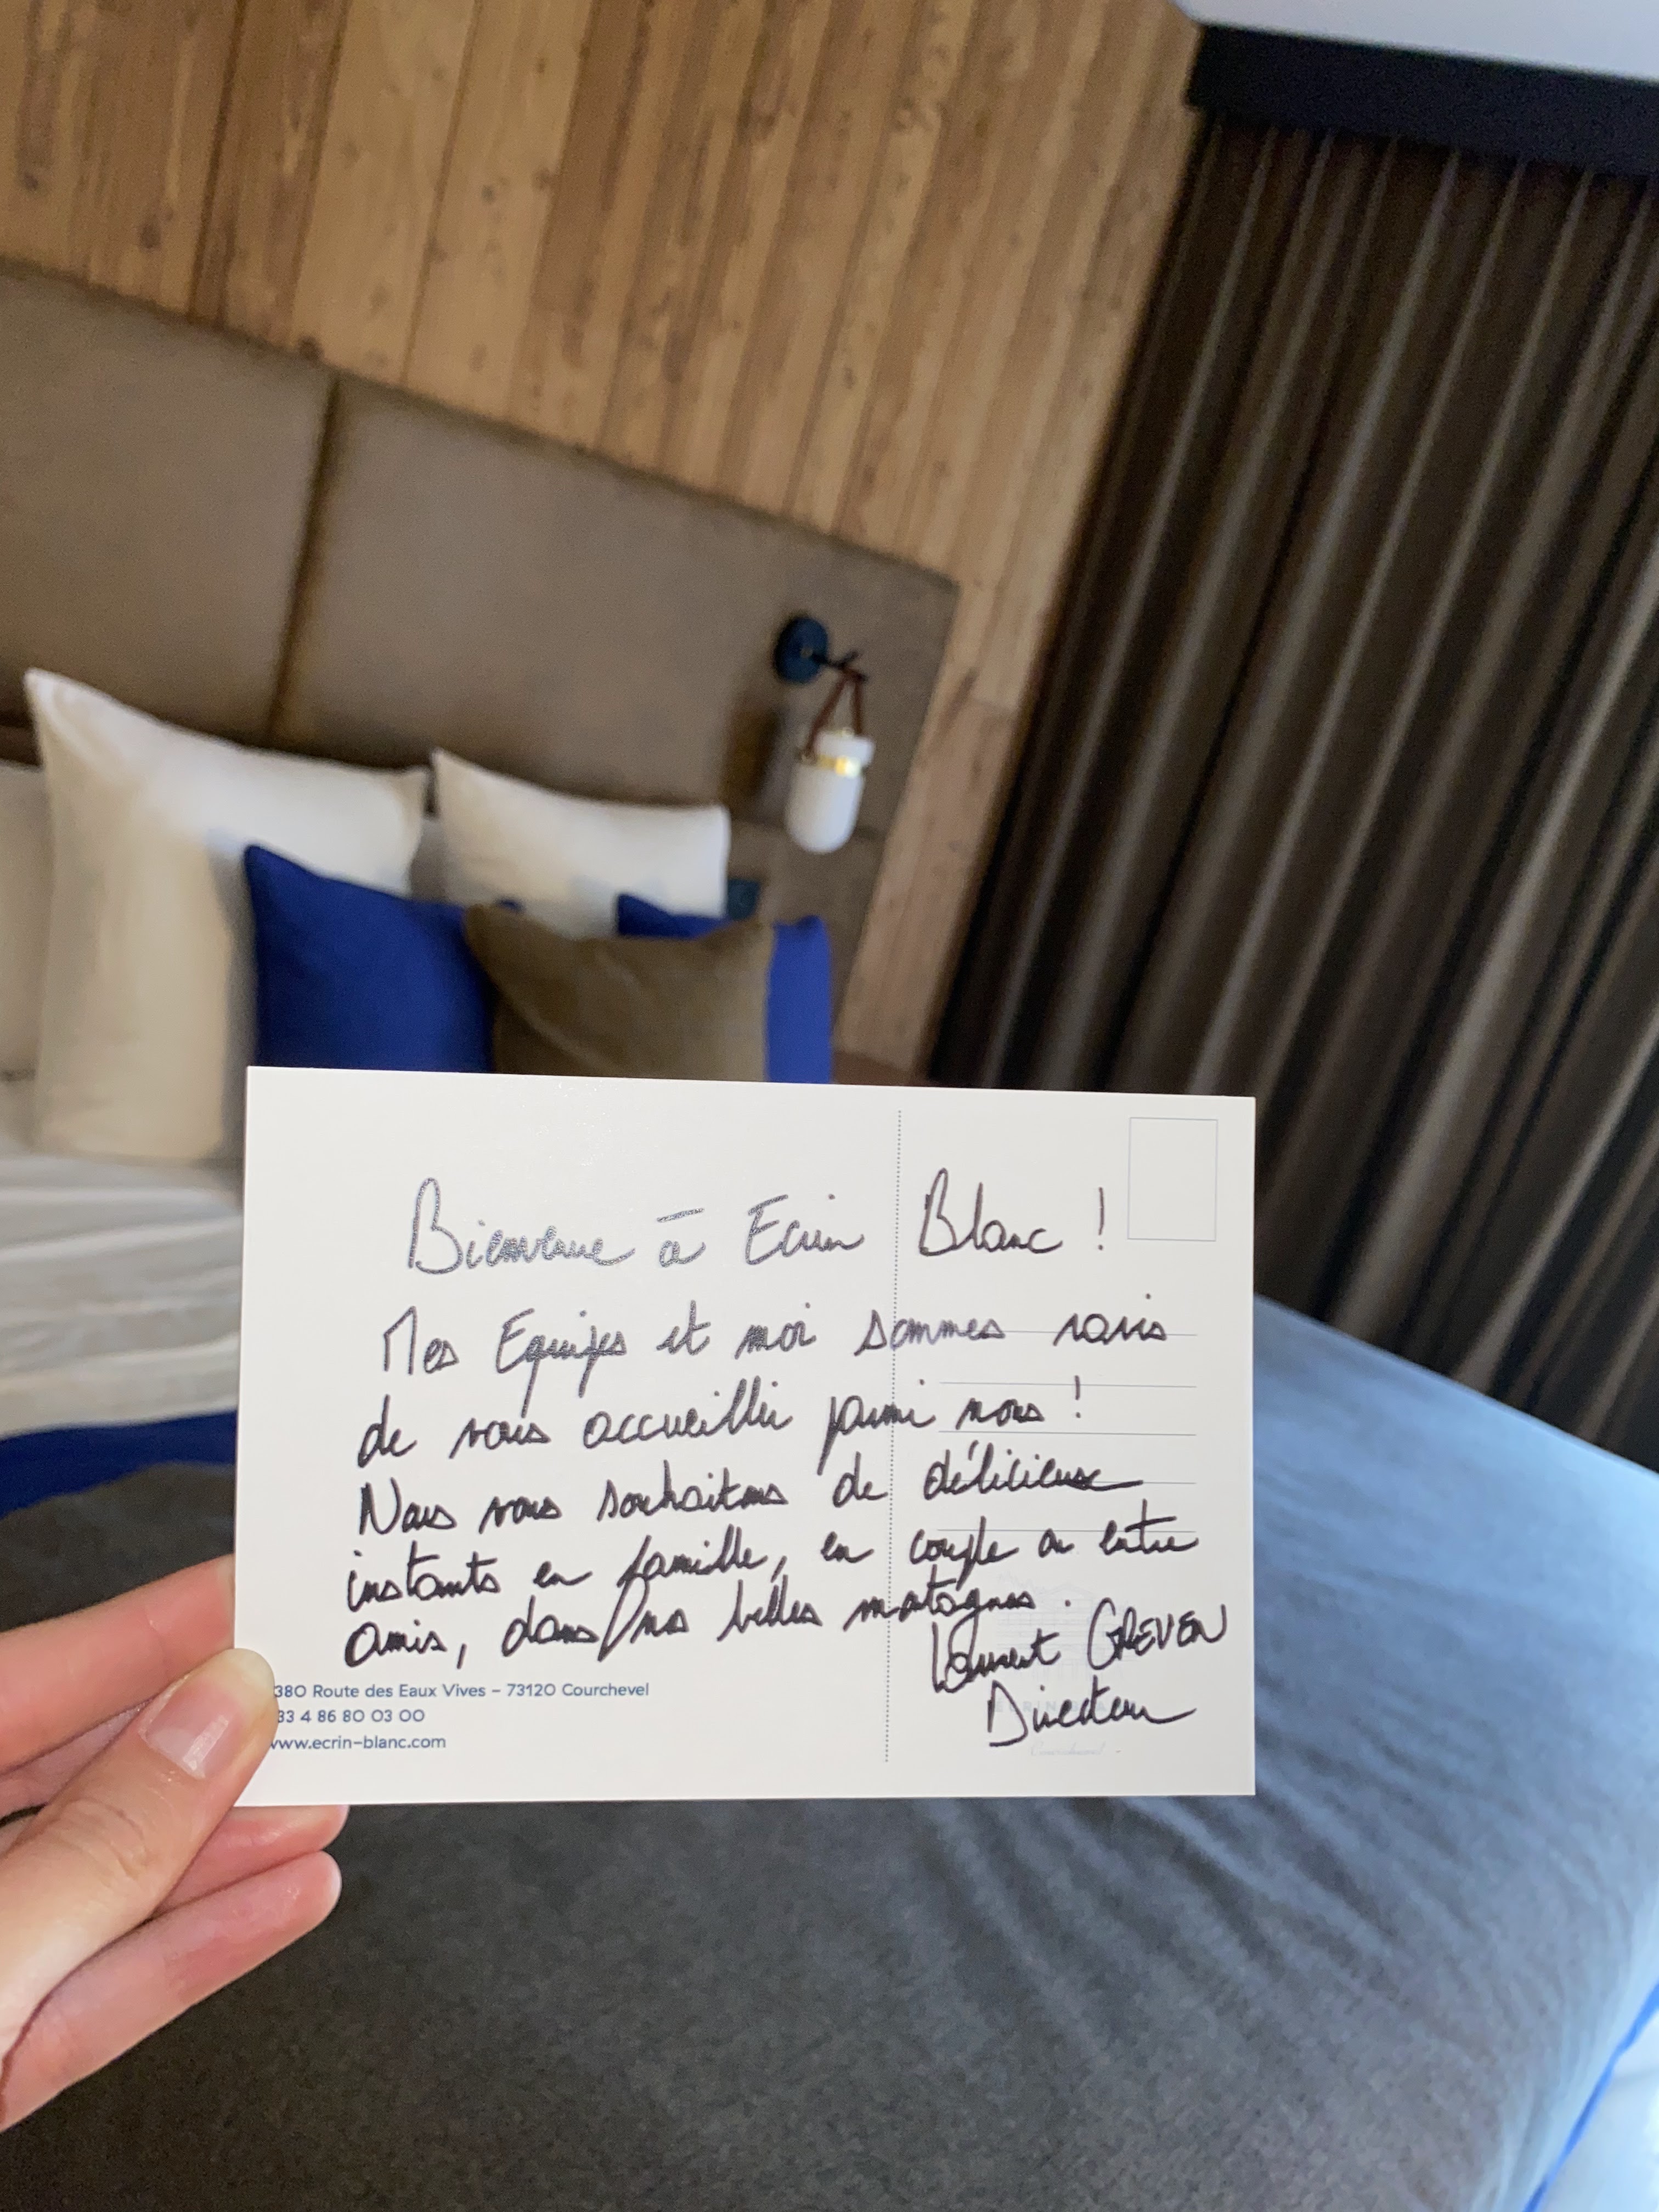 Bienvenue à Ecrin Blanc !
Mes Equipes et moi sommes ravis
de vous accueillir parmi nous !
Nous vous souhaitons de délicieux
instants en famille, en couple ou entre
amis, dans nos belles montagnes.
Laurent GREVEN
Directeur
380 Route des Eaux Vives – 73120 Courchevel
33 4 86 80 03 00
www.ecrin-blanc.com